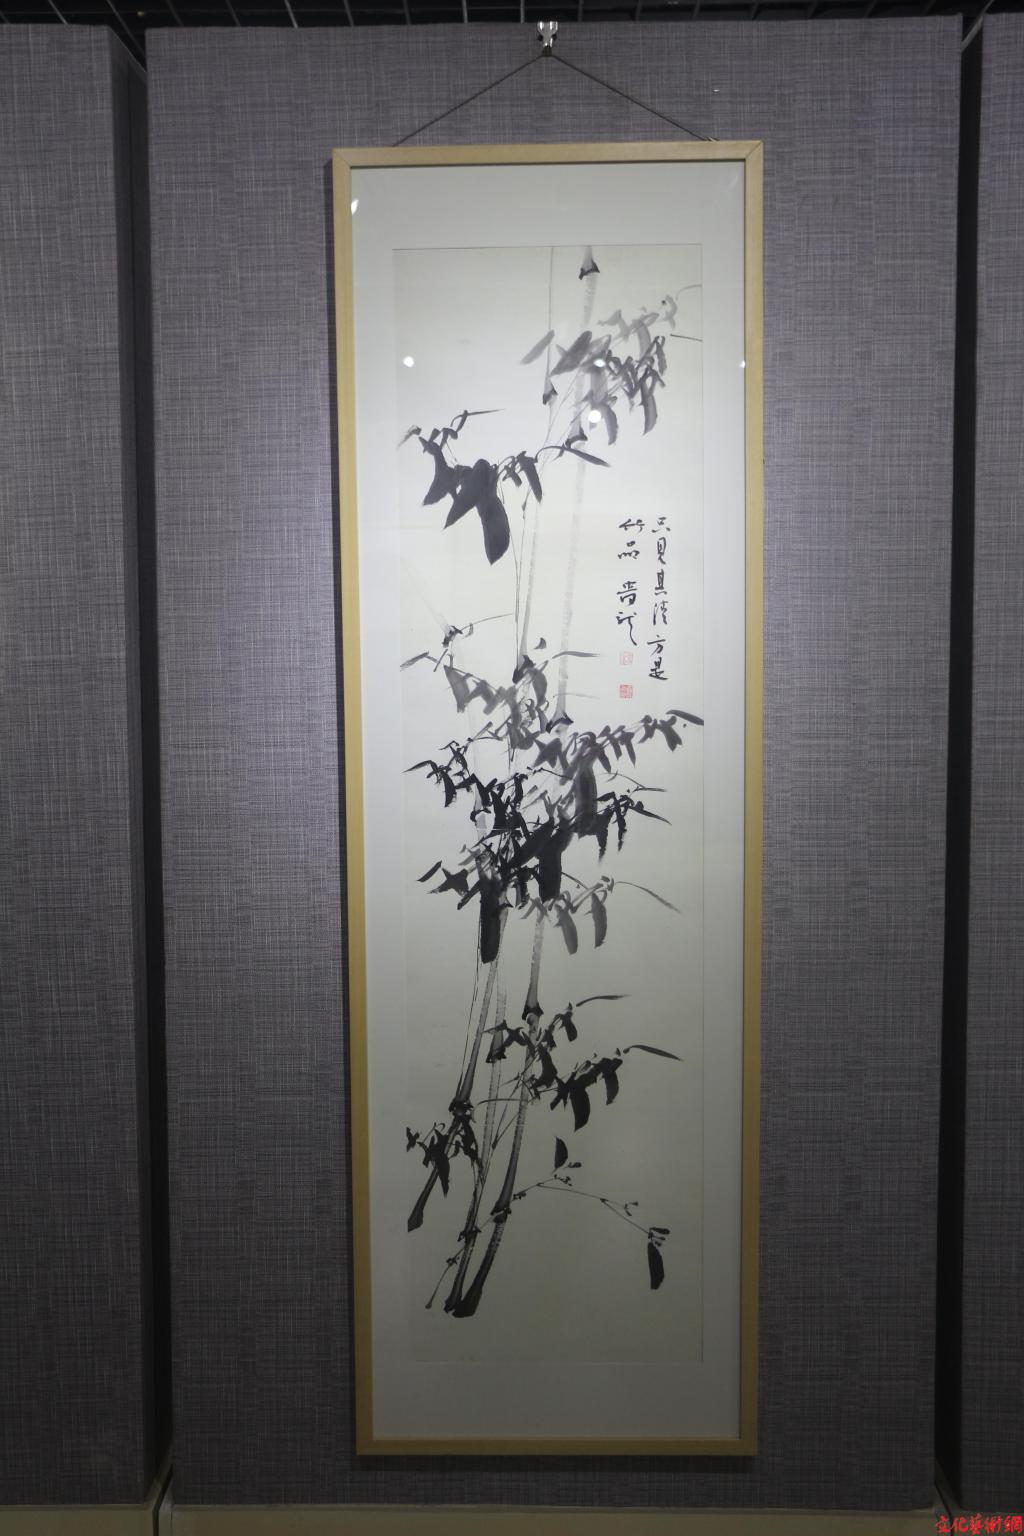 只見其清方是
竹品 晋龙
文化藝術網